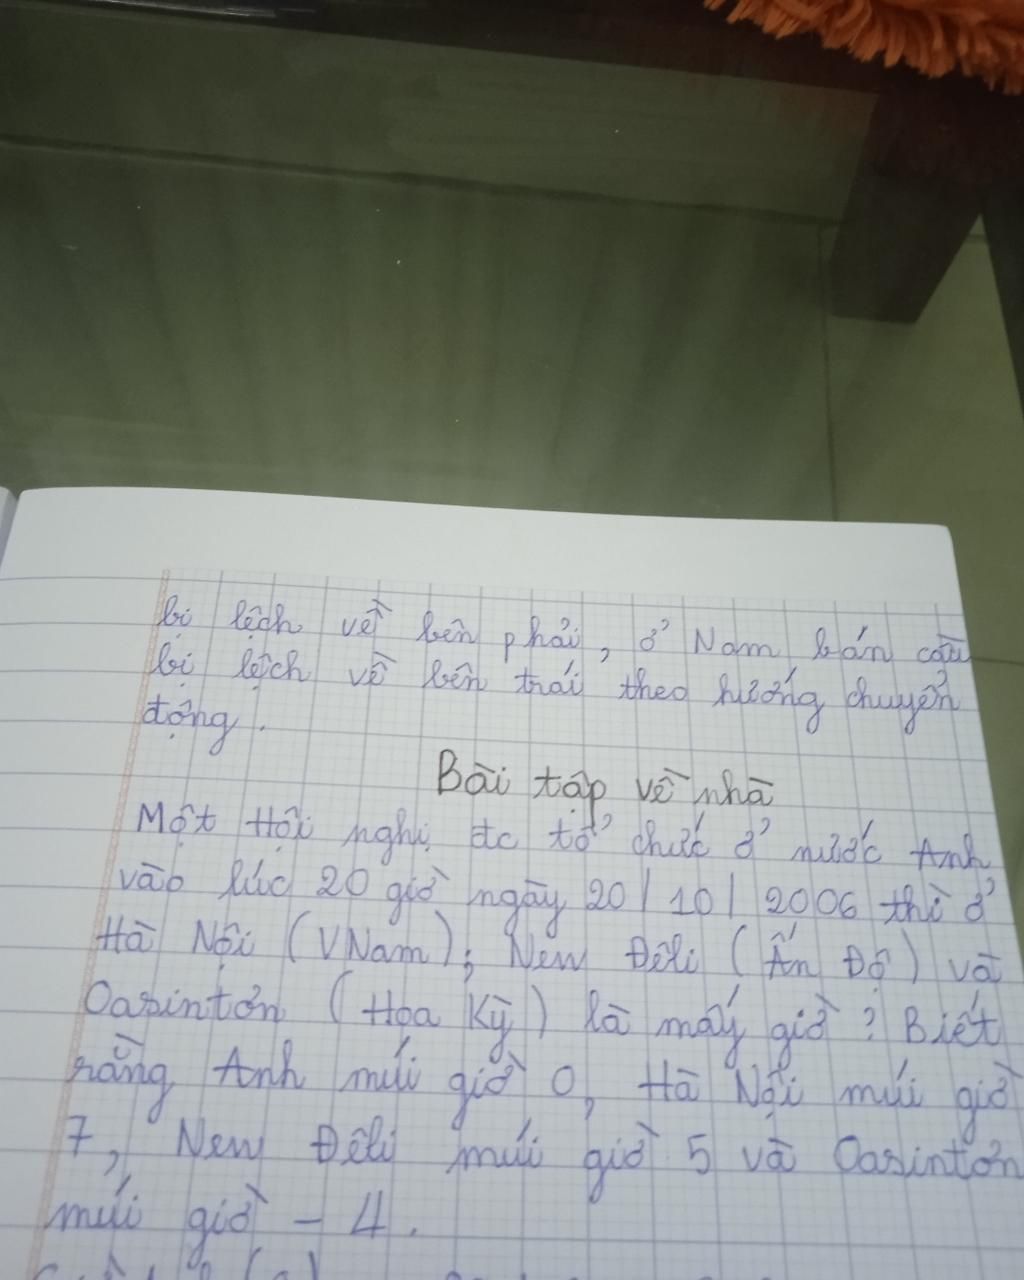 bị lệch về bên phải, ở Nam bán cầu
bị lệch về bên trái theo hướng chuyển
động.
Bài tập về nhà
Một Hội nghị đc tổ chức ở nước Anh
vào lúc 20 giờ ngày 20/10/2006 thì ở
Hà Nội (VNam); New Đêli (Ấn Độ) và
Oasintơn (Hoa Kỳ) là mấy giờ? Biết
rằng Anh múi giờ 0, Hà Nội múi giờ
7, New Đêli múi giờ 5 và Oasintơn
múi giờ - 4.